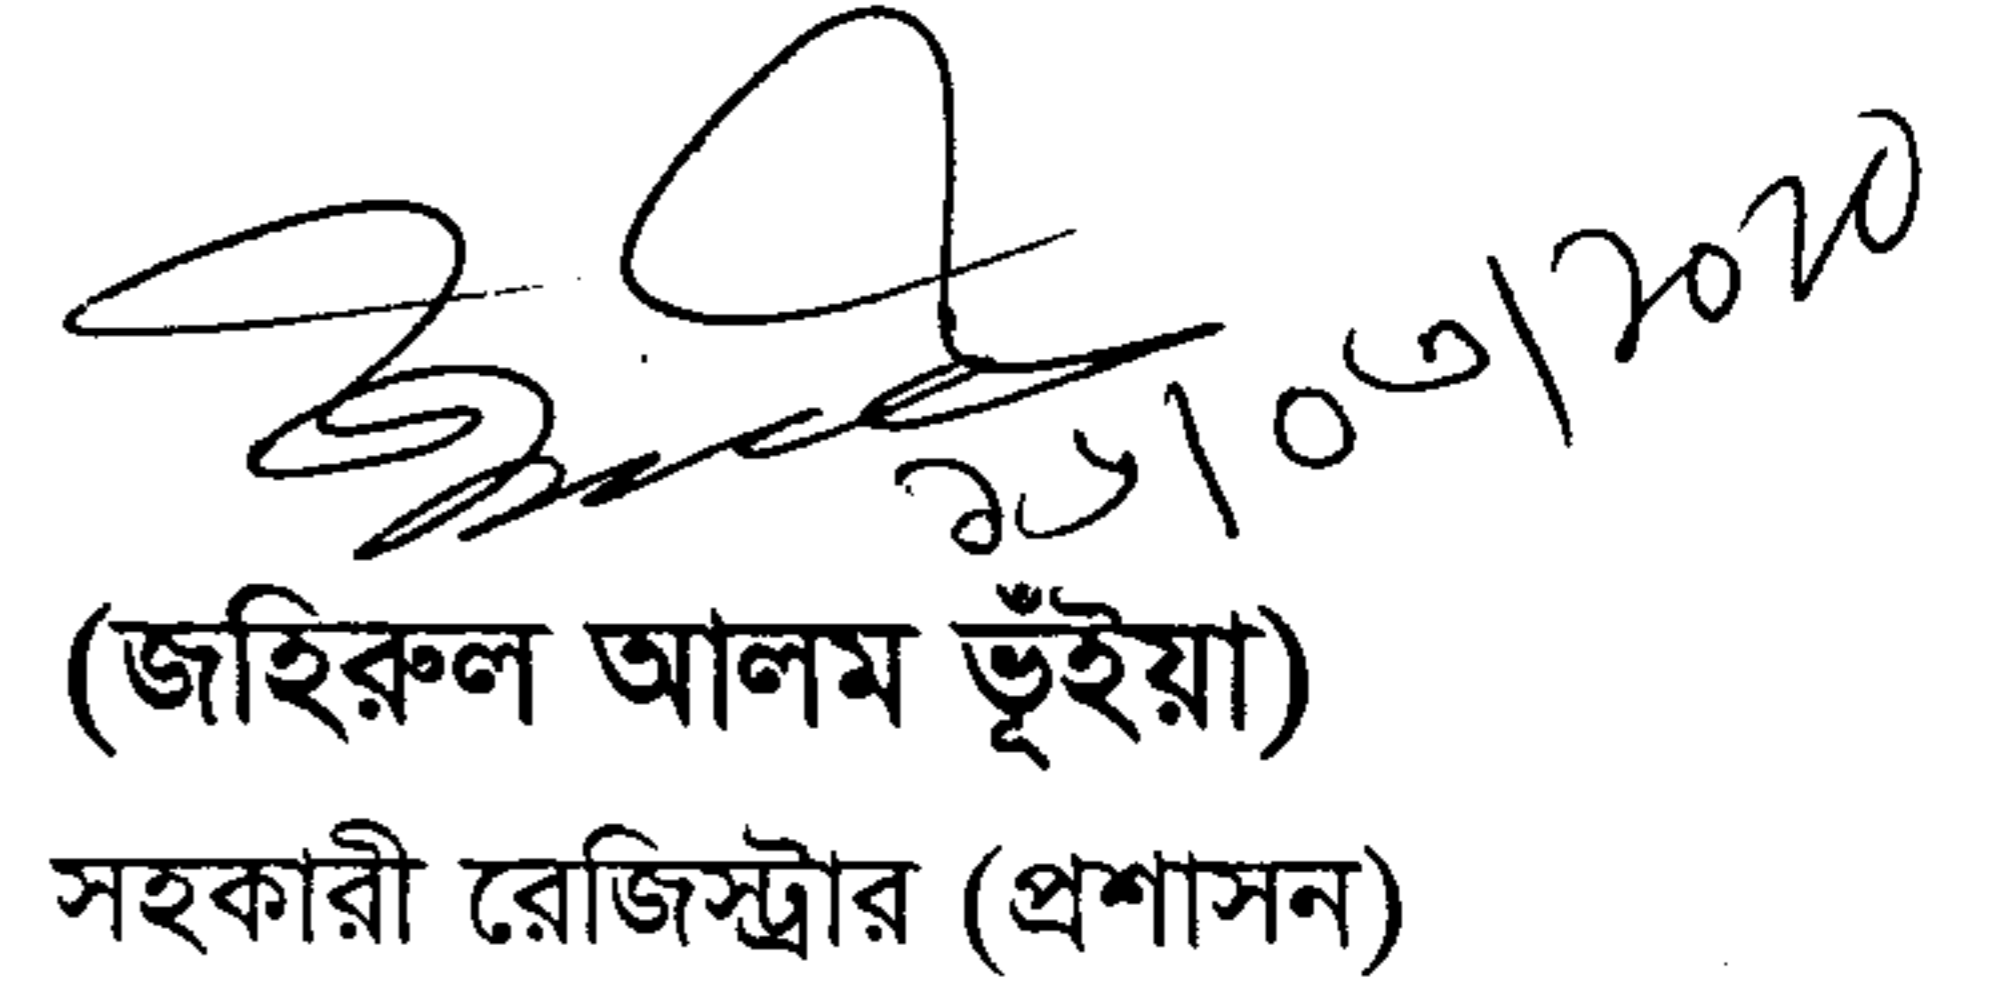 ১৬/০৩/২০২০
(জহিরুল আলম ভূঁইয়া)
সহকারী রেজিস্ট্রার (প্রশাসন)